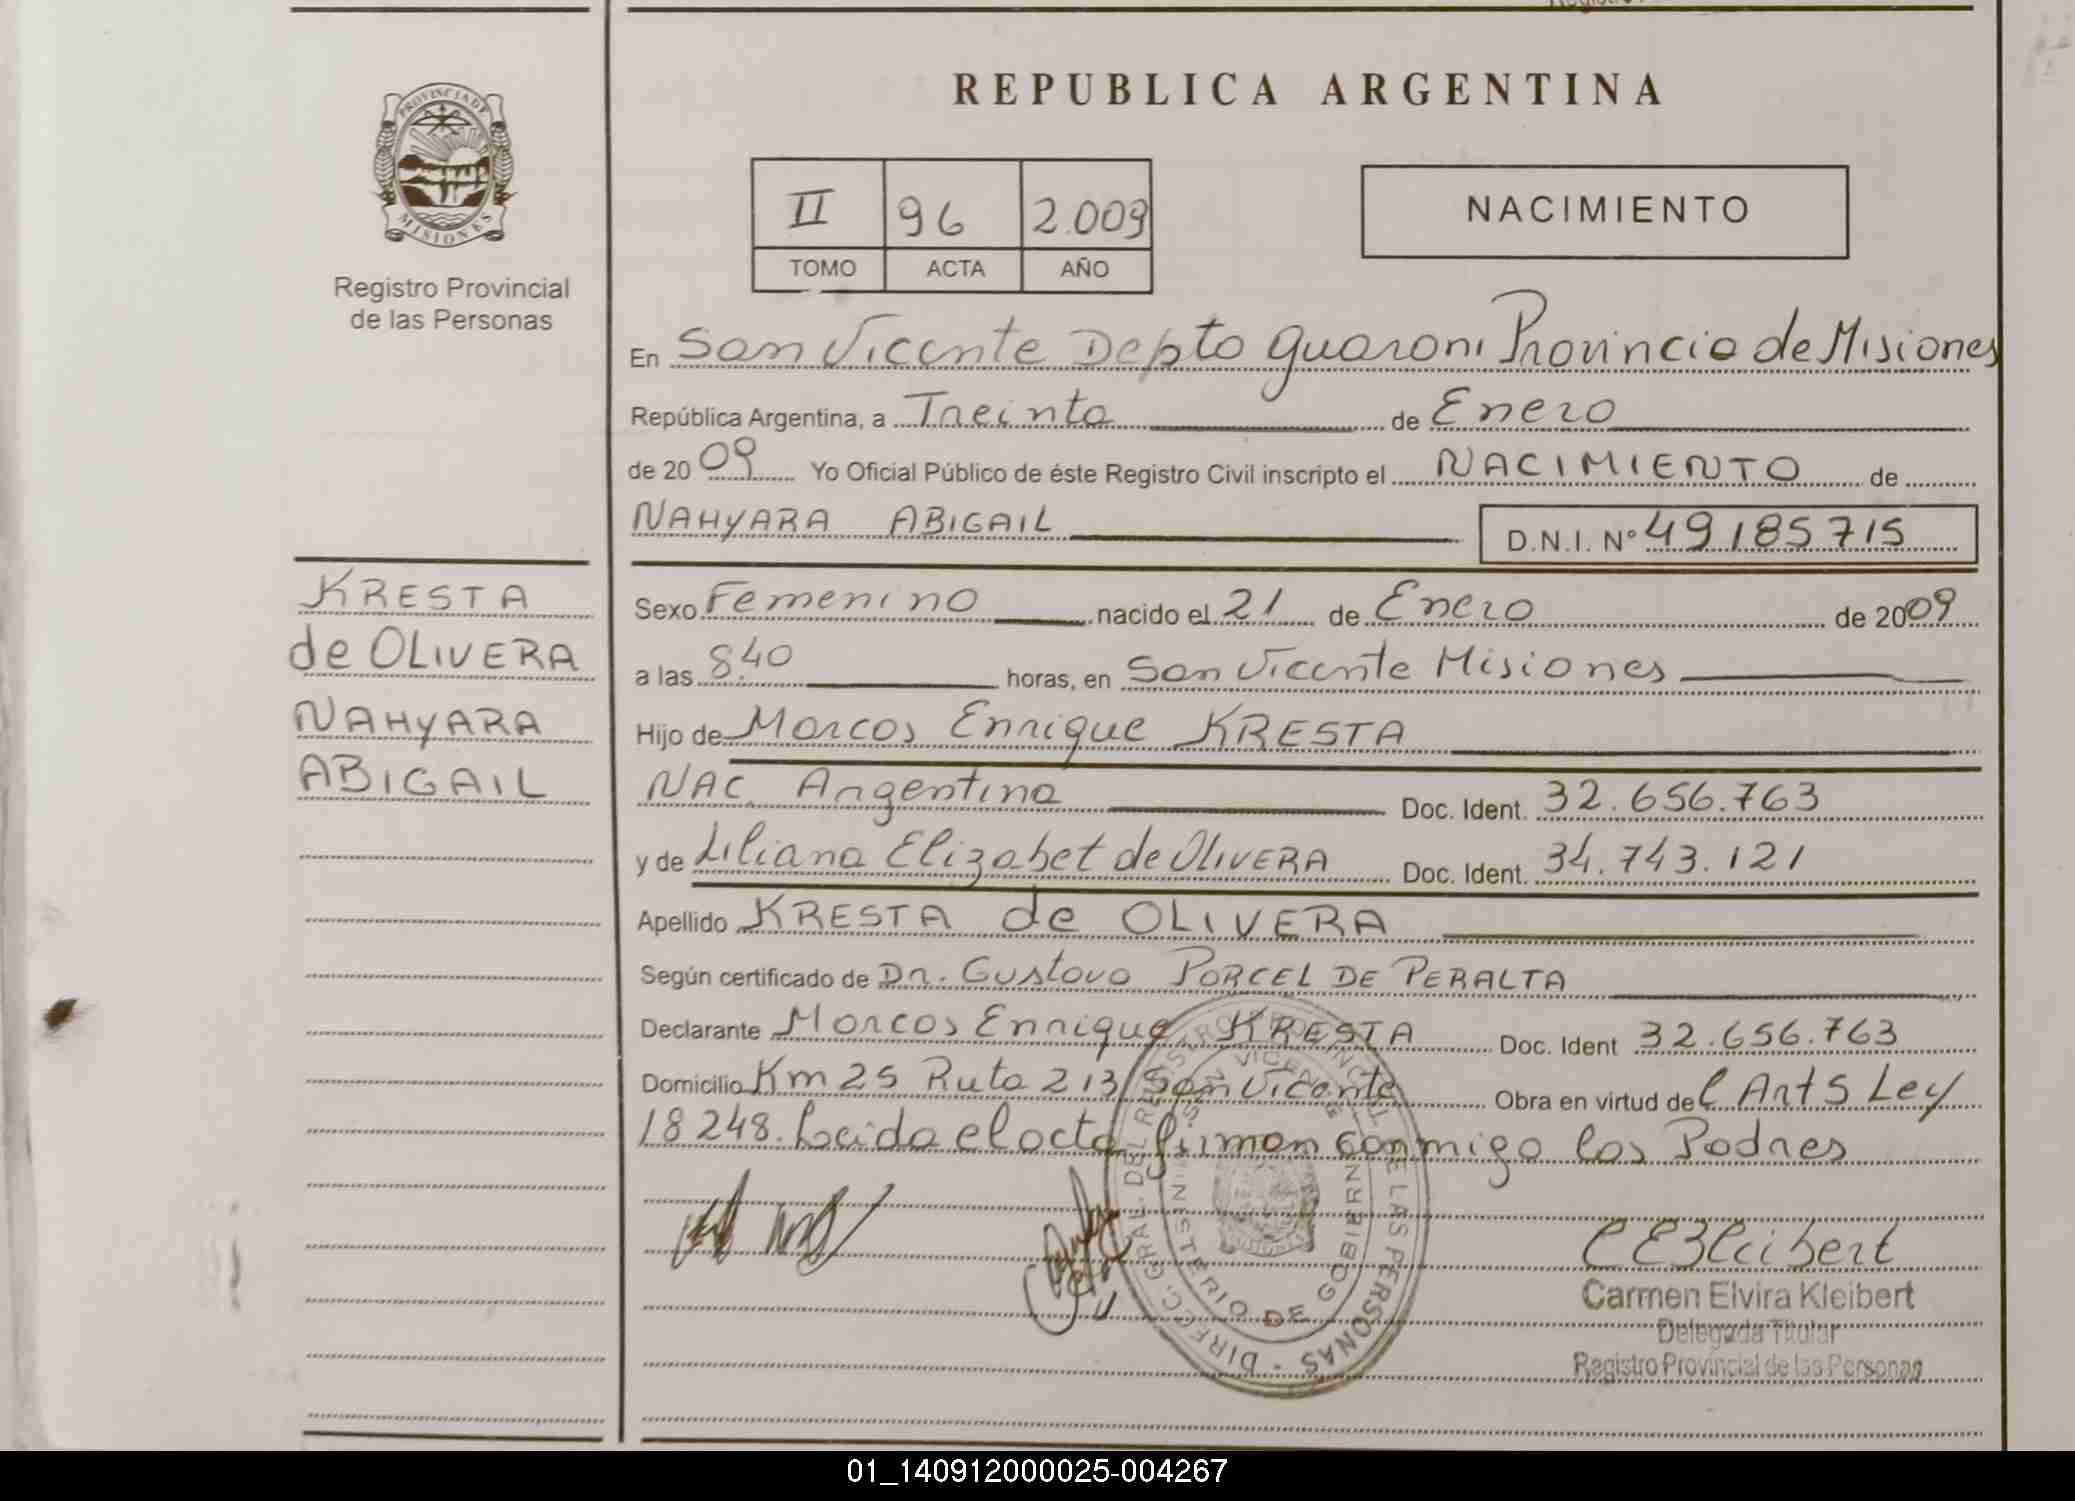 REPUBLICA ARGENTINA
PROVINCIA DE
MISIONES
Registro Provincial
de las Personas
II 96 2.009
TOMO ACTA AÑO
NACIMIENTO
En San Vicente Depto Guarani Provincia de Misiones
República Argentina, a Treinta de Enero
de 2009 Yo Oficial Público de éste Registro Civil inscripto el NACIMIENTO de
NAHYARA ABIGAIL D.N.I. N° 49185715
KRESTA
de OLIVERA
NAHYARA
ABIGAIL
Sexo Femenino nacido el 21 de Enero de 2009
a las 8.40 horas, en San Vicente Misiones
Hijo de Marcos Enrique KRESTA
NAC. Argentina Doc. Ident. 32.656.763
y de Liliana Elizabet de OLIVERA Doc. Ident. 34.743.121
Apellido KRESTA de OLIVERA
Según certificado de Dr. Gustavo PORCEL DE PERALTA
Declarante Marcos Enrique KRESTA Doc. Ident 32.656.763
Domicilio Km 25 Ruta 213 San Vicente Obra en virtud del Art 5 Ley
18248. Leida el acta firman conmigo los Padres
DIREC. GRAL. DEL REGISTRO PROVINCIAL DE LAS PERSONAS
SAN VICENTE
MINISTERIO DE GOBIERNO
CEKleibert
Carmen Elvira Kleibert
Delegada Titular
Registro Provincial de las Personas
01_140912000025-004267